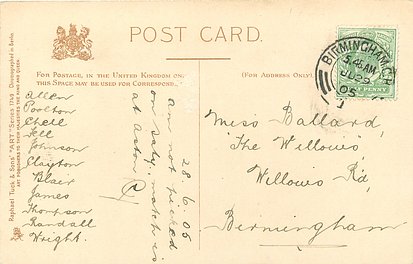 POST CARD.
FOR POSTAGE, IN THE UNITED KINGDOM ONLY,
THIS SPACE MAY BE USED FOR CORRESPONDENCE.
(FOR ADDRESS ONLY.)
Raphael Tuck & Sons' "ART" Series 1749
ART PUBLISHERS TO THEIR MAJESTIES THE KING AND QUEEN.
Allen
Poolton
Chell
Fell
Johnson
Clayton
Blair
James
Thompson
Randall
Wright.
28.6.05
am not picked
on Saty. match is
at Aston
Miss Ballard,
"The Willows"
Willows Rd,
Birmingham
BIRMINGHAM
5.45 AM
JU 29
05